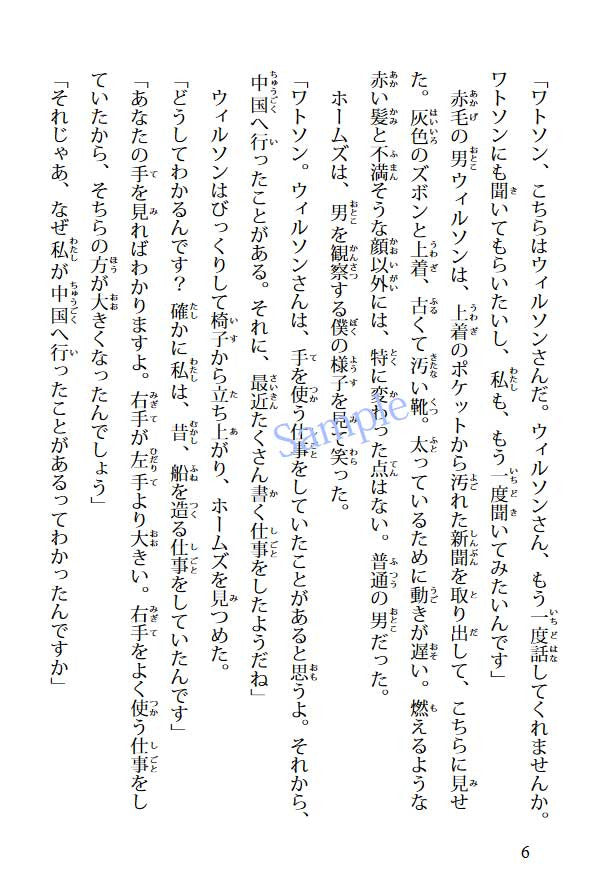 「ワトソン、こちらはウィルソンさんだ。ウィルソンさん、もう一度話してくれませんか。
ワトソンにも聞いてもらいたいし、私も、もう一度聞いてみたいんです」
赤毛の男ウィルソンは、上着のポケットから汚れた新聞を取り出して、こちらに見せ
た。灰色のズボンと上着、古くて汚い靴。太っているために動きが遅い。燃えるような
赤い髪と不満そうな顔以外には、特に変わった点はない。普通の男だった。
ホームズは、男を観察する僕の様子を見て笑った。
「ワトソン。ウィルソンさんは、手を使う仕事をしていたことがあると思うよ。それから、
中国へ行ったことがある。それに、最近たくさん書く仕事をしたようだね」
ウィルソンはびっくりして椅子から立ち上がり、ホームズを見つめた。
「どうしてわかるんです？ 確かに私は、昔、船を造る仕事をしていたんです」
「あなたの手を見ればわかりますよ。右手が左手より大きい。右手をよく使う仕事をし
ていたから、そちらの方が大きくなったんでしょう」
「それじゃあ、なぜ私が中国へ行ったことがあるってわかったんですか」
Sample
6